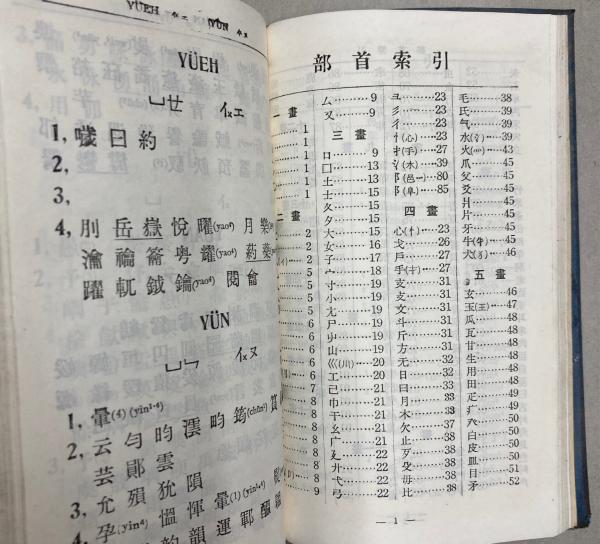 YÜEH
YÜN
YÜEH
ㄩㄝ
1, 噦曰約
2,
3,
4, 刖岳嶽悅曜(yao⁴) 月樂
瀹禴籥粵耀(yao⁴) 葯藥
躍軏鉞鑰(yao⁴) 閱龠
YÜN
ㄩㄣ
1, 暈(4)(yin1·4)
2, 云勻昀澐畇筠
芸鄖雲
3, 允殞狁隕
4, 孕(yin⁴) 慍惲暈(1)(yin1·4)
韵韻運鄆醞
部首索引
一畫
1
1
1
1
1
二畫
2
2
2
5
5
5
6
6
6
6
7
8
8
8
8
8
9
厶………9
又………9
三畫
口………9
囗………13
土………13
士………15
夂………15
夊………15
夕………15
大………15
女………16
子………17
宀………18
寸………19
小………19
尢………19
尸………19
屮………19
山………19
巛(川)…20
工………20
己………21
巾………21
干………21
幺………21
广………21
廴………22
廾………22
弋………22
弓………22
彐………23
彡………23
彳………23
忄(心)…23
扌(手)…27
氵(水)…39
阝(邑)…80
阝(阜)…85
四畫
心(忄)…23
戈………26
戶………26
手(扌)…27
支………31
攴………31
文………31
斗………31
斤………31
方………31
无………32
日………32
曰………33
月………33
木………33
欠………37
止………38
歹………38
殳………38
毋………38
比………38
毛………38
氏………39
气………39
水(氵)…39
火(灬)…44
爪………45
父………45
爻………45
爿………45
片………45
牙………45
牛(牜)…45
犬(犭)…46
五畫
玄………46
玉(王)…47
瓜………48
瓦………48
甘………48
生………48
用………48
田………48
疋………49
疒………49
癶………50
白………50
皮………50
皿………50
目………51
矛………52
— 1 —